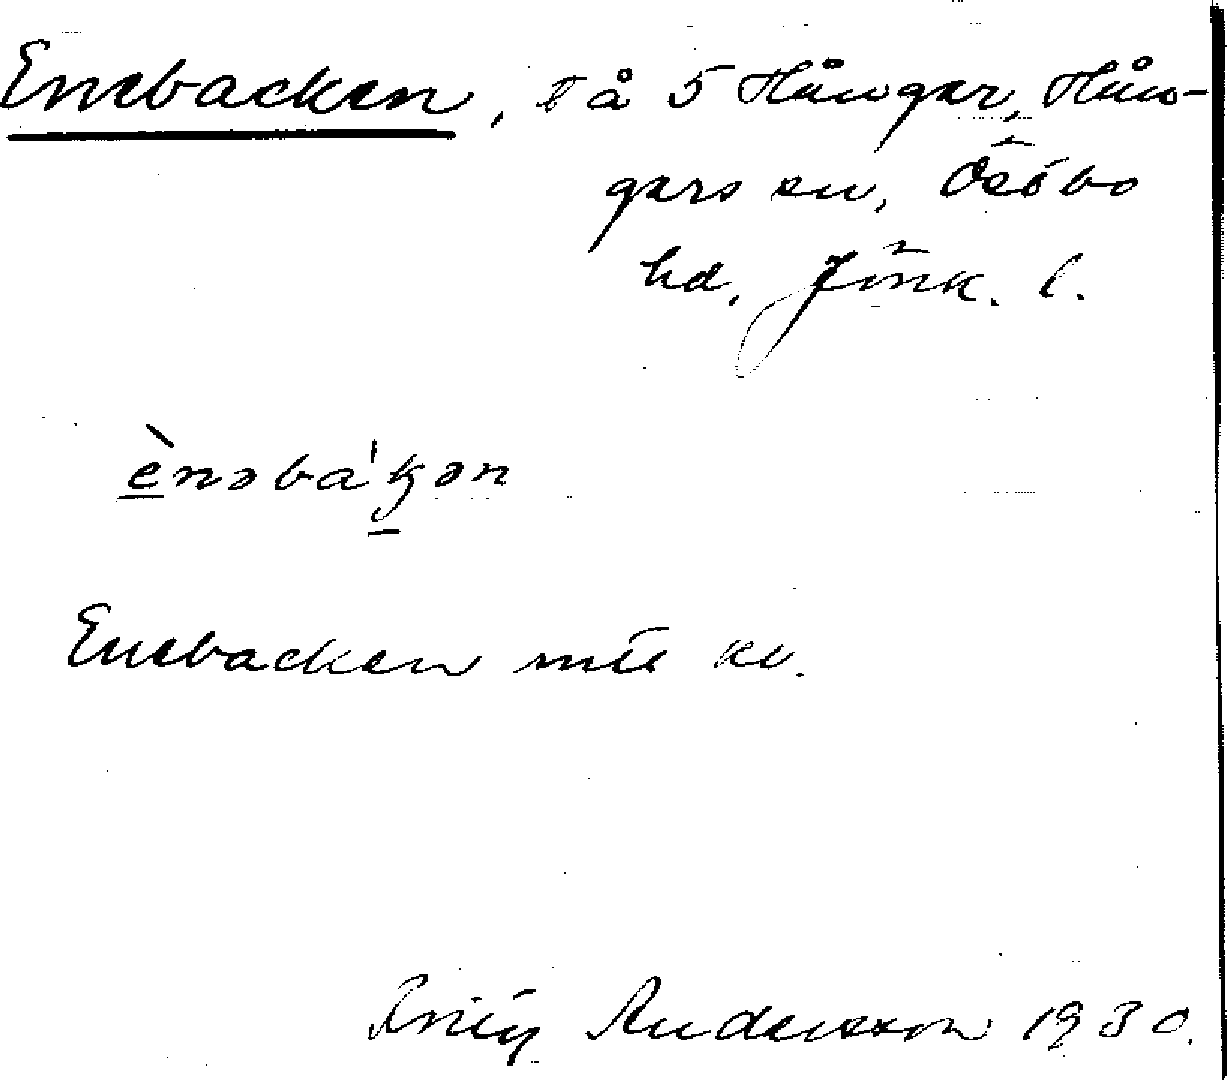 Enebacken, t å 5 Hånger, Hån-
gers sn, Östbo
hd, Jönk. l.
ènəba'kən
Enebacken mtl kv.
Andersson 1930.